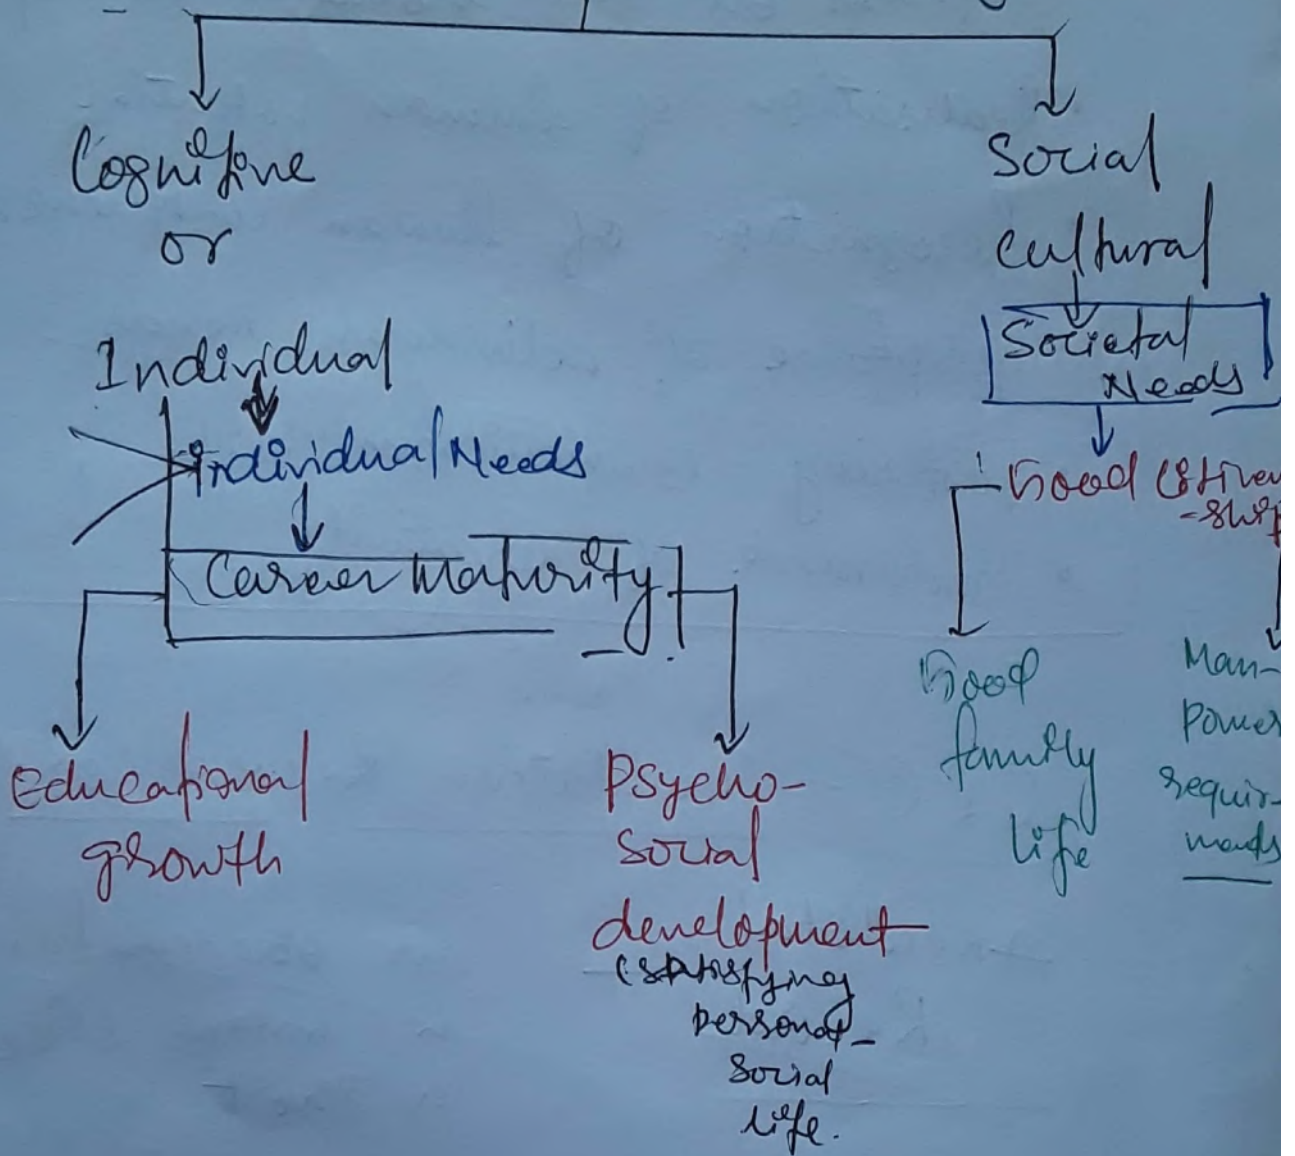 Cognitive
or
Individual
individual Needs
Career Maturity
Educational
growth
Psycho-
Social
development
(satisfying
personal-
Social
life.
Social
cultural
Societal
Needs
Good Citizen
-ship
Good
family
life
Man-
Power
requir-
ments